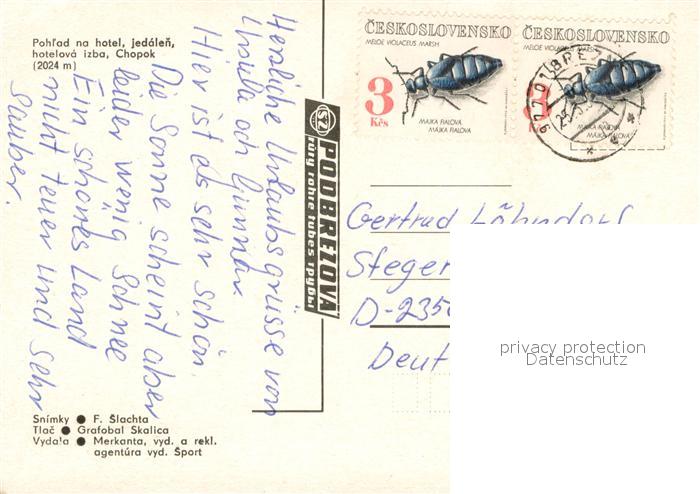 Pohľad na hotel, jedáleň,
hotelová izba, Chopok
(2024 m)
Herzliche Urlaubsgrüsse von
Ursula och Gunnar
Hier ist es sehr schön.
Die Sonne scheint aber
leider wenig Schnee
Ein schönes Land
nicht teuer und sehr
sauber.
Snímky ● F. Šlachta
Tlač ● Grafobal Skalica
Vydala ● Merkanta, vyd. a rekl.
agentúra vyd. Šport
PODBREZOVÁ
rúry rohre tubes трубы
ČESKOSLOVENSKO
MELOE VIOLACEUS MARSH
3
Kčs
MAJKA FIALOVÁ
MÁJKA FIALOVÁ
ČESKOSLOVENSKO
MELOE VIOLACEUS MARSH
3
Kčs
MAJKA FIALOVÁ
MÁJKA FIALOVÁ
Gertrud
Steger
D-235
Deut
privacy protection
Datenschutz